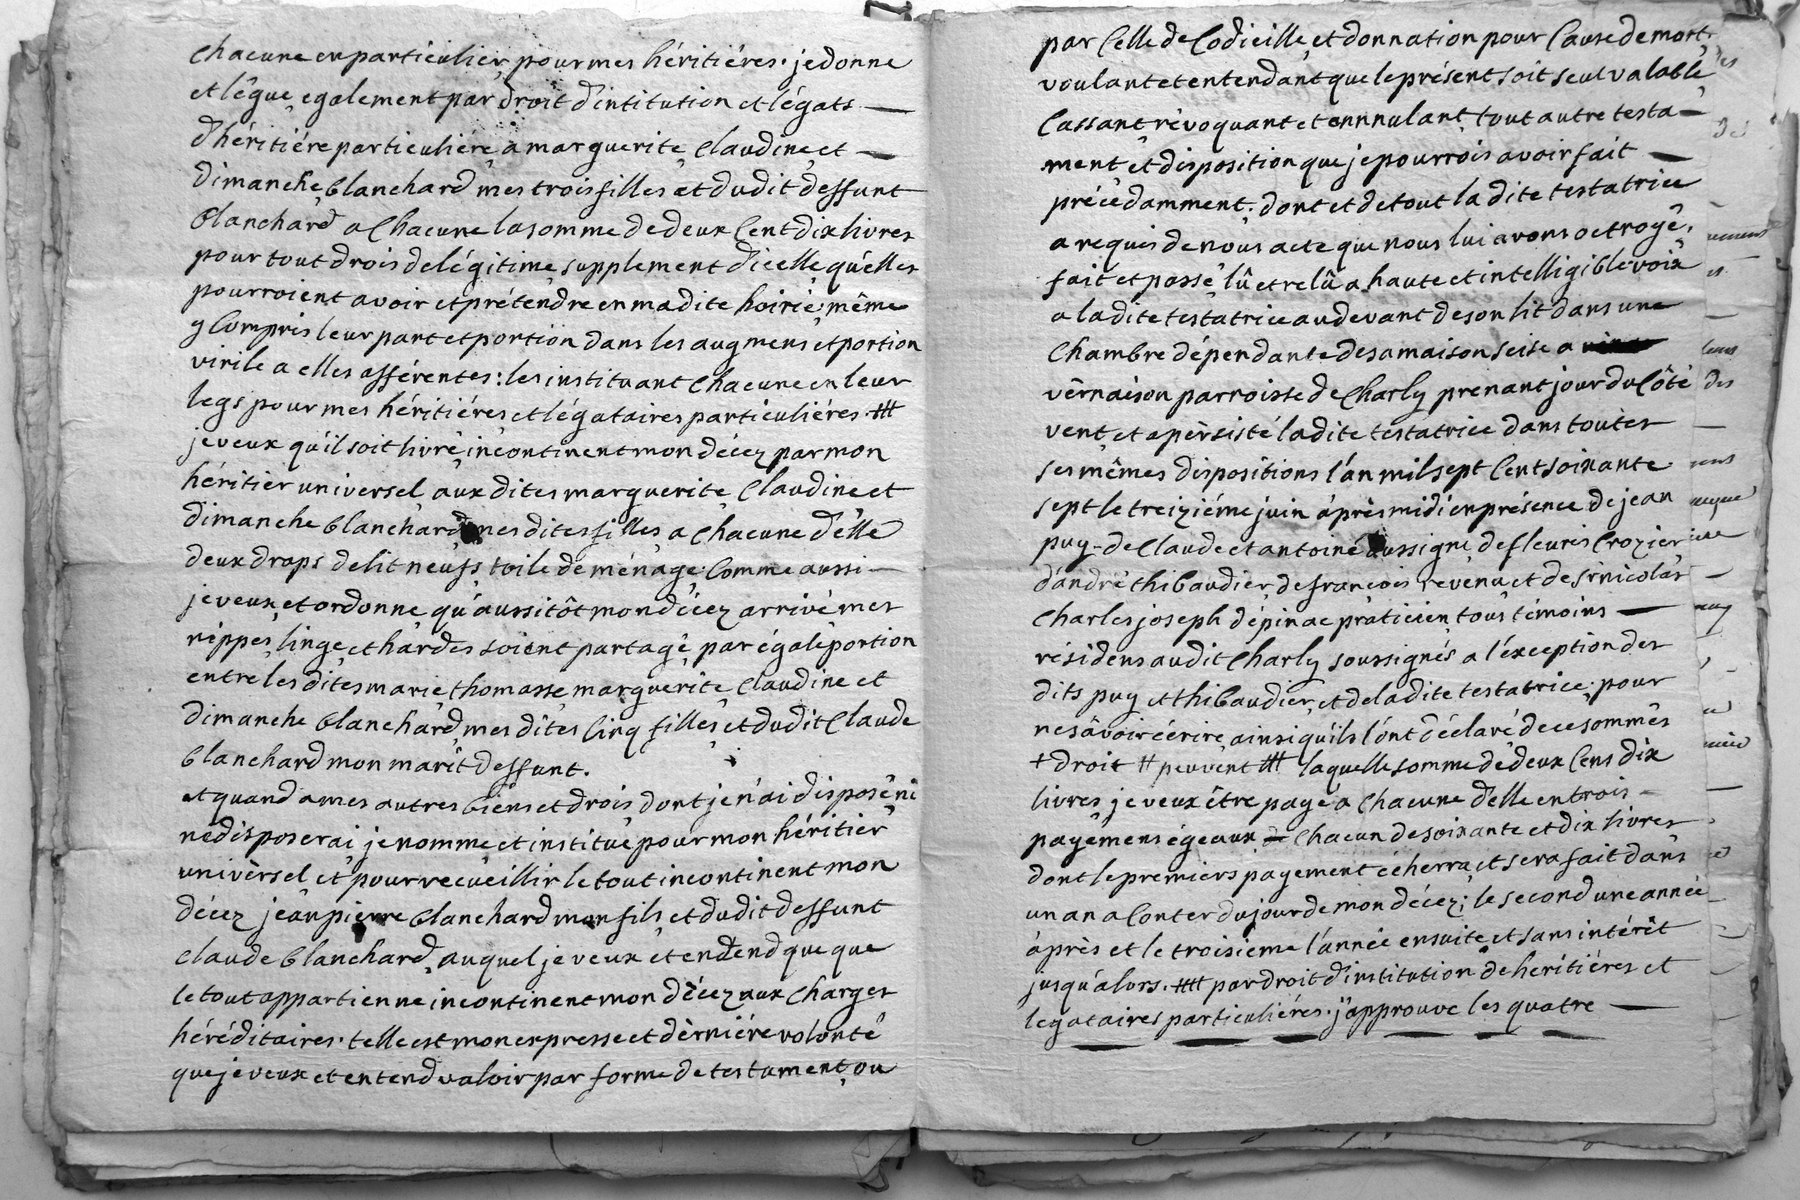 chacune en particulier pour mes héritiéres. je donne
et légue egalement par droit d'intitution et légats —
d'héritiére particuliére a marguerite Claudine et —
dimanche blanchard mes trois filles et dudit deffunt
blanchard a Chacune la somme de deux Cent dix livres
pour tout drois de légitime supplement d'icelle qu'elles
pourroient avoir et prétendre en ma dite hoirie même
y Compris leur part et portion dans les augmens et portion
virile a elles afférentes: les instituant Chacune en leur
legs pour mes héritiéres et légataires particuliéres. ⧻
je veux qu'il soit livré incontinent mon décez par mon
héritier universel aux dites marguerite Claudine et
dimanche blanchard mes dites filles a Chacune d'elle
deux draps de lit neufs toile de ménage. Comme aussi —
je veux et ordonne qu'aussitôt mon décez arrivé mes
nippes, linge et hardes soient partagé par égale portion
entre les dites marie thomasse marguerite Claudine et
dimanche blanchard mes dites Cinq filles et dudit Claude
blanchard mon marit deffunt.
et quand a mes autres biens et drois dont je n'ai disposé ni
ne disposerai je nomme et institue pour mon héritier
univèrsel et pour recueillir le tout incontinent mon
décez jean pierre blanchard mon fils et dudit deffunt
claude blanchard, auquel je veux et endend que que
le tout appartienne incontinent mon décez aux Charges
héréditaires. telle est mon expresse et dèrniére volonté
que je veux et entend valoir par forme de testament, ou
par Celle de Codicille, et donnation pour Cause de mort
voulant et entendant que le présent soit seul valable
Cassant révoquant et ennnulant tout autre testa-
ment et disposition que je pourrois avoir fait —
précédamment; dont et de tout la dite testatrice
a requis de nous acte que nous lui avons octroyé,
fait et passé lû et relû a haute et intelligible voix
a la dite testatrice au devant de son lit dans une
Chambre dépendante de sa maison seise a
vèrnaison parroisse de Charly prenant jour du Côté
vent, et a pèrsisté la dite testatrice dans toutes
ses mêmes dispositions l'an mil sept Cent soixante
sept le treiziéme juin après midi en présence de jean
puy - de Claude et antoine aussigne de fleuris Crozier
d'andré thibaudier, de françois revenu et de sr nicolas
Charles joseph d'épinac praticien tous témoins —
résidens audit Charly soussignés a l'éxception des
dits puy et thibaudier, et de la dite testatrice, pour
ne sâvoir écrire, ainsi qu'ils l'ont déclaré de ce sommés
+ droit ⧺ peuvent ⧻ laquelle somme de deux Cens dix
livres, je veux être payé a Chacune d'elle en trois —
payémens égeaux Chacun de soixante et dix livres
dont le premiers payement écherra et sera fait dans
un an a Conter du jour de mon décéz; le second une année
après et le troisieme l'année ensuite et sans intérêt
jusqu'alors. ⧻ par droit d'institution de heritiéres et
legataires particuliéres. j'approuve les quatre —